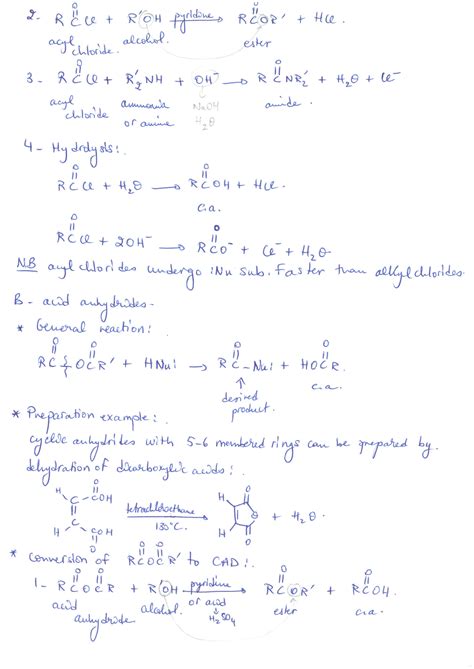 2. RCCl (O) + R'OH pyridine → RCOR' (O) + HCl.
acyl chloride. alcohol. ester
3 - RCCl (O) + R'₂NH + OH⁻ → RCNR'₂ (O) + H₂O + Cl⁻
acyl chloride ammonia or amine NaOH H₂O amide.
4 - Hydrolysis:.
RCCl (O) + H₂O → RCOH (O) + HCl.
c.a.
RCCl (O) + 2OH⁻ → RCO⁻ (O) + Cl⁻ + H₂O
NB acyl chlorides undergo :Nu sub. faster than alkyl chlorides.
B - acid anhydrides -
* General reaction:.
RC (O) OCR' (O) + HNu: → RC (O) - Nu: + HOCR (O).
desired product. c.a.
* Preparation example:.
cyclic anhydrides with 5-6 membered rings can be prepared by
dehydration of dicarboxylic acids:.
H C COH (O) C H COH (O) tetrachloroethane 130°C. → H H O O O + H₂O.
* conversion of RCOCR' (O O) to CAD:.
1 - RCOCR (O O) + R'OH pyridine or acid H₂SO₄ → RCOR' (O) + RCOH (O).
acid anhydride alcohol. ester c.a.